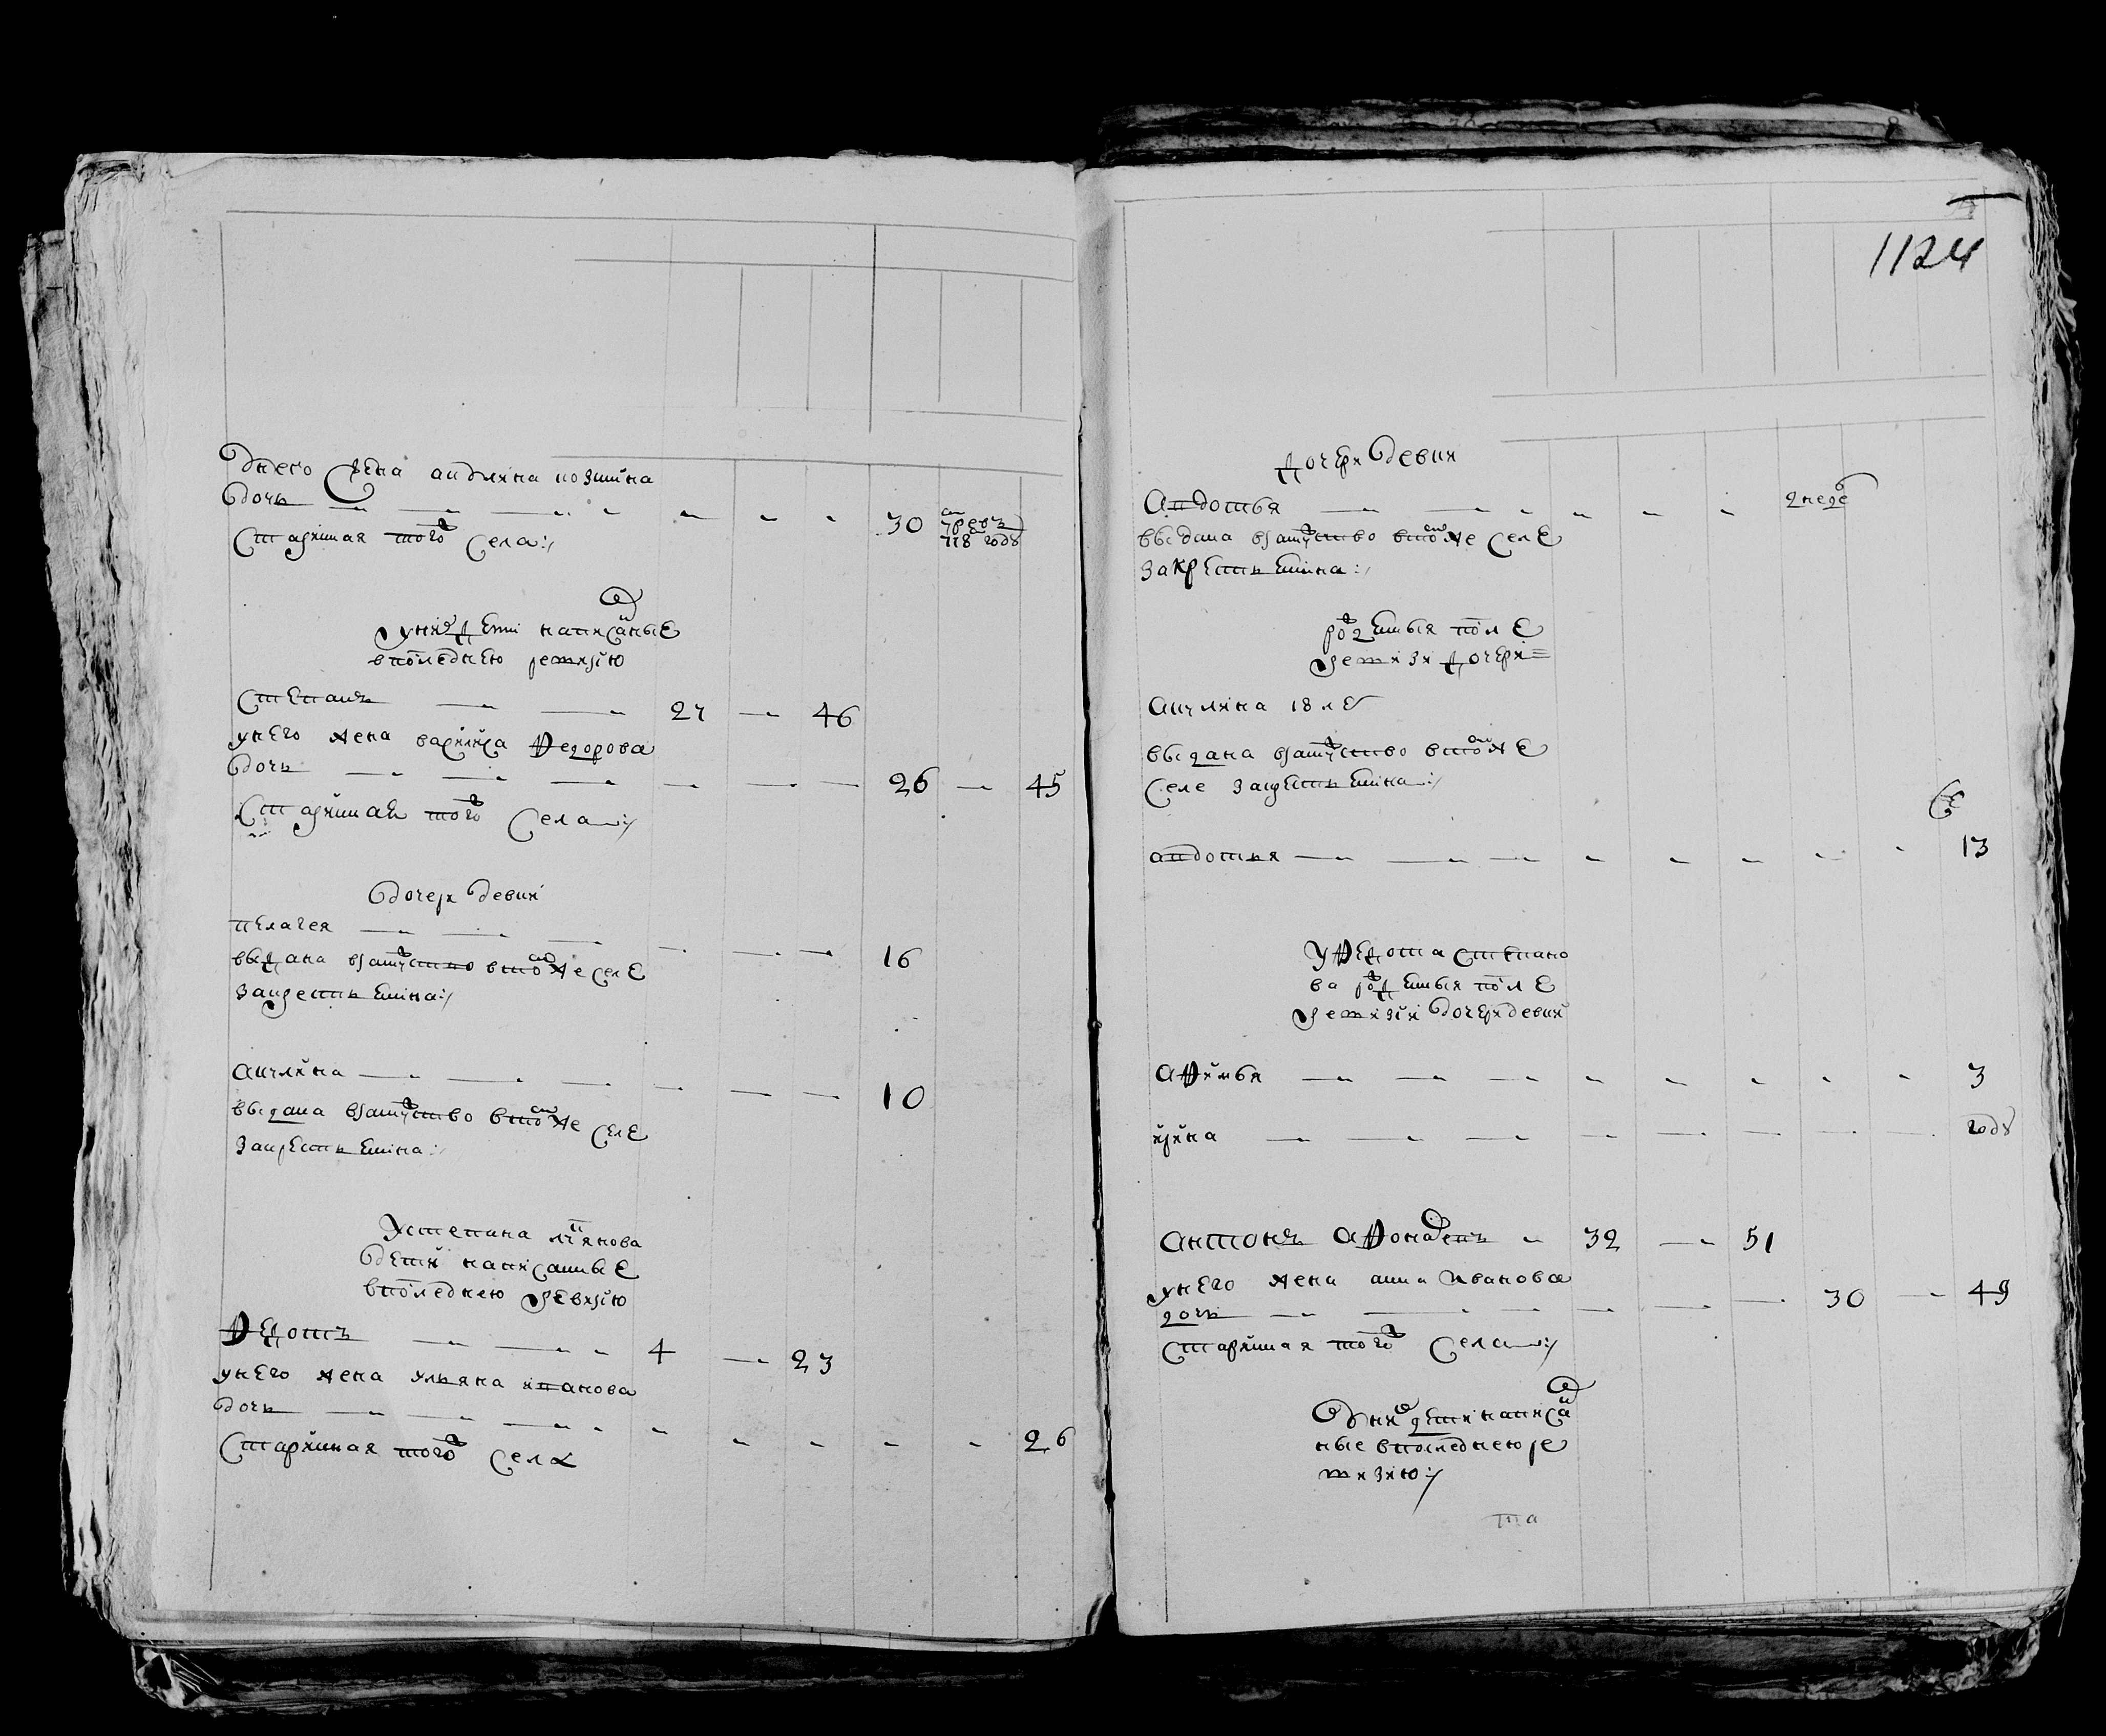 У него жена андляна козмина
дочь 30 умре въ 778 году
Старинная того села:/
У них дети написанные
в последнею ревизию
Степанъ 27 46
у него жена василиса Федорова
дочь 26 45
Старинная того Села:/
Дочери девки
пелагея 16
выдана в замужство в том же селе
за крестьянина:/
анчлина 10
выдана в замужство в том же селе
за крестьянина:/
У степана
дети написанные
в последнею ревизию
Федотъ 4 23
у него жена ульяна иванова
дочь 26
Старинная того села
1124
Дочери девки
Авдотья 2 неде
выдана в замужство в том же селе
за крестьянина:/
рожденныя после
ревизи дочери
анчлина 18 ле
выдана в замужство в том же
селе за крестьянина:/
авдотья 13
У Федота степано
ва рожденныя после
ревизии дочери девки
афимья 3
ирина году
антонъ афонасьевъ 32 51
у него жена анна иванова
дочь 30 49
Старинная того Села:/
У них дети написан
ные в последнею ре
визию:/